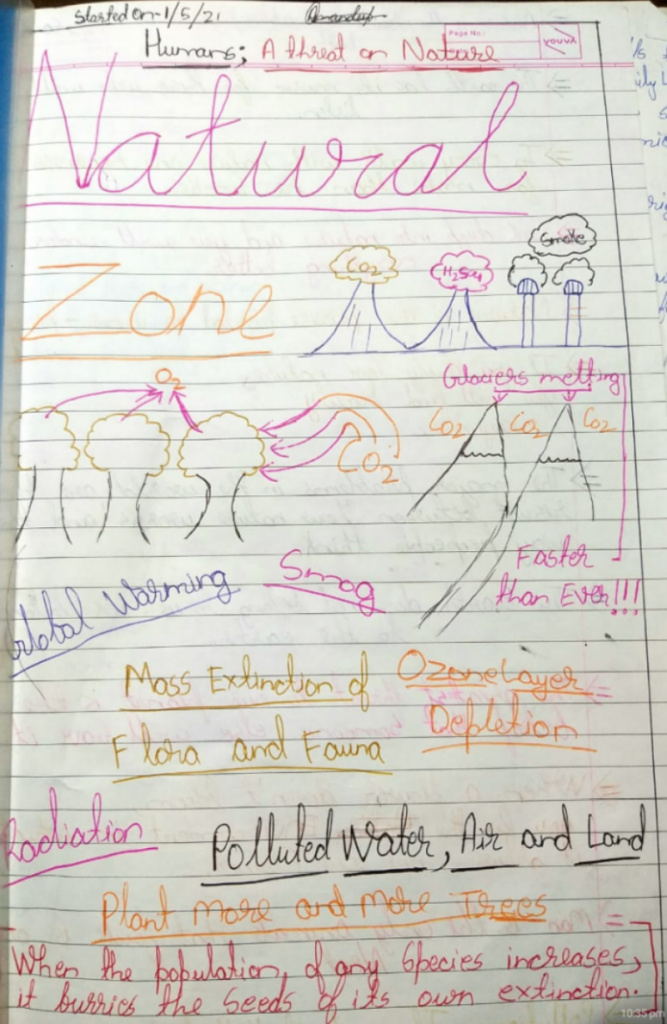 Started on-1/5/21
Page No:
YOUVA
Humans; A threat on Nature
Natural
Smoke
CO2
H2SO4
Zone
Glaciers melting
O2
CO2
CO2
CO2
CO2
Faster
than Ever!!!
Smog
Global Warming
Mass Extinction of
Flora and Fauna
Ozone Layer
Depletion
Radiation
Polluted Water, Air and Land
Plant More and More Trees
When the population, of any Species increases,
it burries the seeds of its own extinction.
10:35 pm